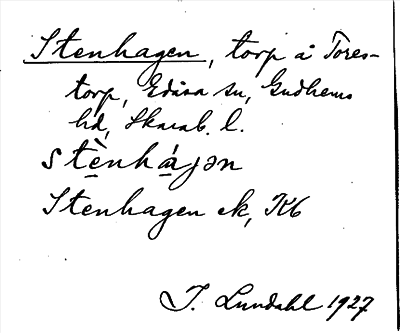 Stenhagen, torp å Tores-
torp, Edåsa sn, Gudhems
hd, Skarab. l.
stè̱nhá̱jən
Stenhagen ek, JK6
I. Lundahl 1927